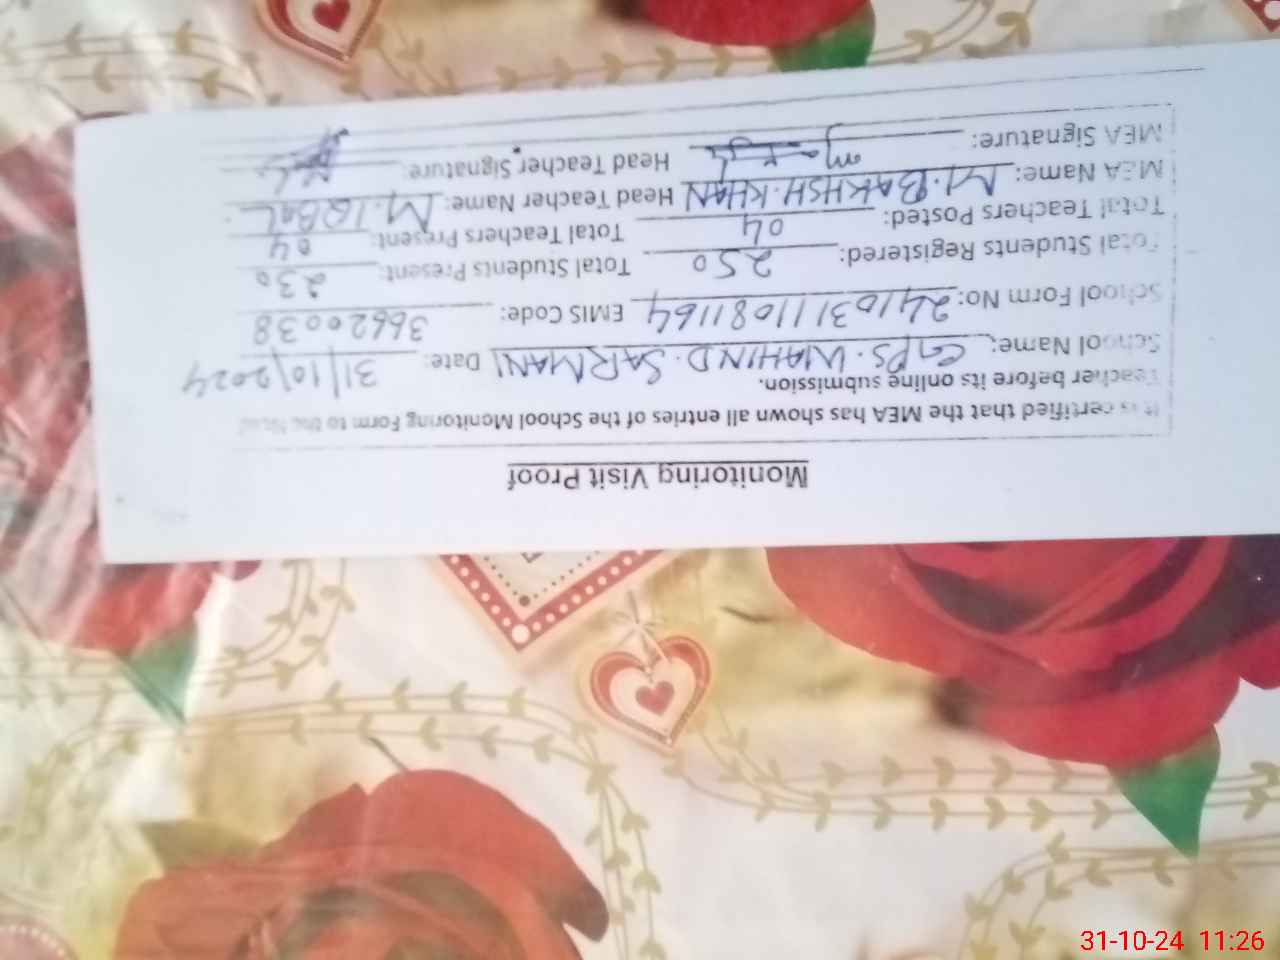 Monitoring Visit Proof
It is certified that the MEA has shown all entries of the School Monitoring Form to the Head
Teacher before its online submission.
School Name: GPS. WAHIND. SARMANI Date: 31/10/2024
School Form No: 2411031111081164 EMIS Code: 36620038
Total Students Registered: 250 Total Students Present: 230
Total Teachers Posted: 04 Total Teachers Present: 04
MEA Name: M. BAKHSH. KHAN Head Teacher Name: M. IQBAL
MEA Signature: Head Teacher Signature:
31-10-24 11:26